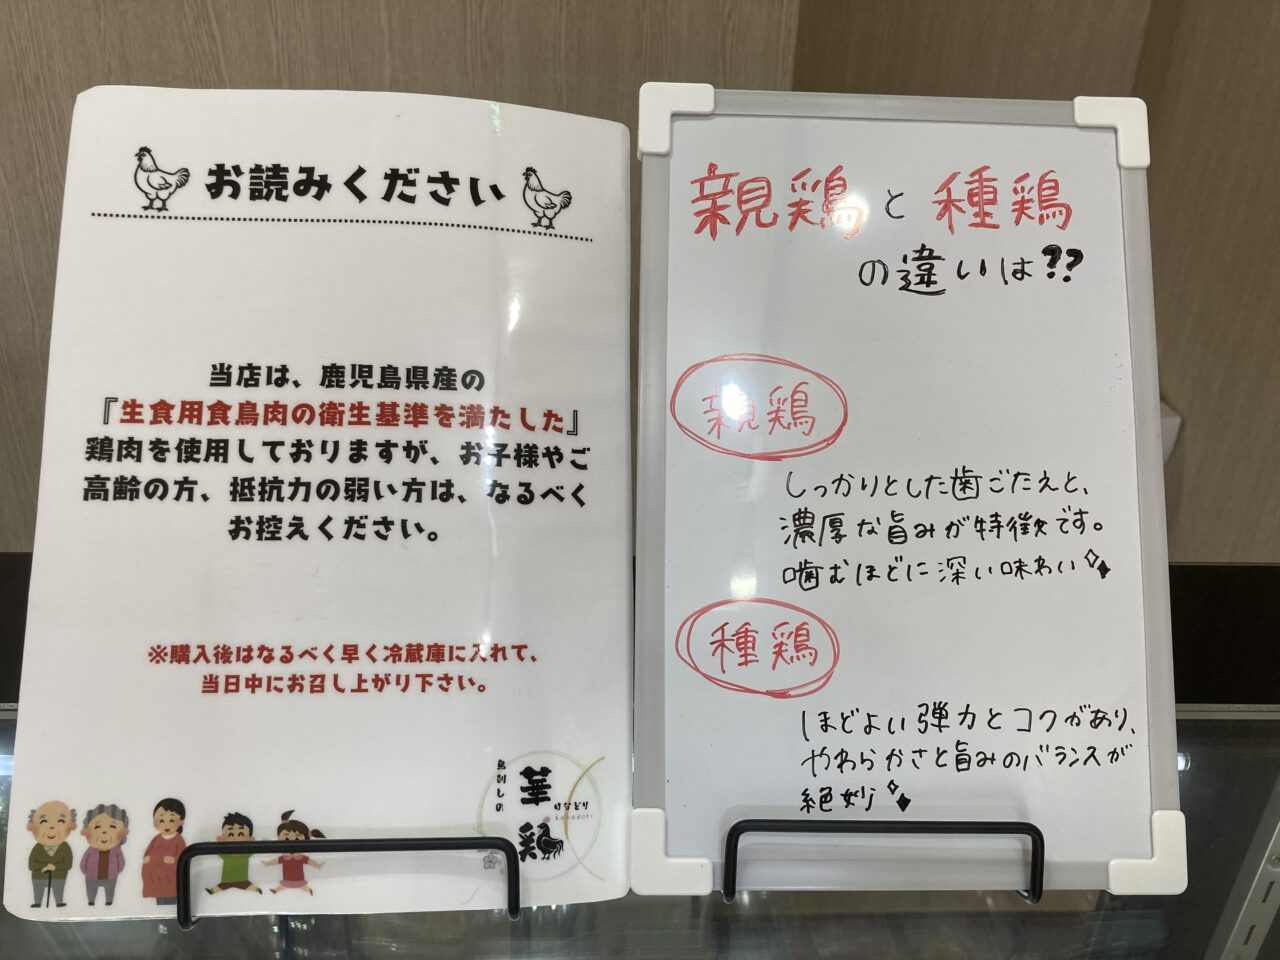 お読みください
当店は、鹿児島県産の
『生食用食鳥肉の衛生基準を満たした』
鶏肉を使用しておりますが、お子様やご
高齢の方、抵抗力の弱い方は、なるべく
お控えください。
※購入後はなるべく早く冷蔵庫に入れて、
当日中にお召し上がり下さい。
鳥刺しの
華鶏
はなどり
hanadori
親鶏と種鶏
の違いは??
親鶏
しっかりとした歯ごたえと、
濃厚な旨みが特徴です。
噛むほどに深い味わい
種鶏
ほどよい弾力とコクがあり、
やわらかさと旨みのバランスが
絶妙